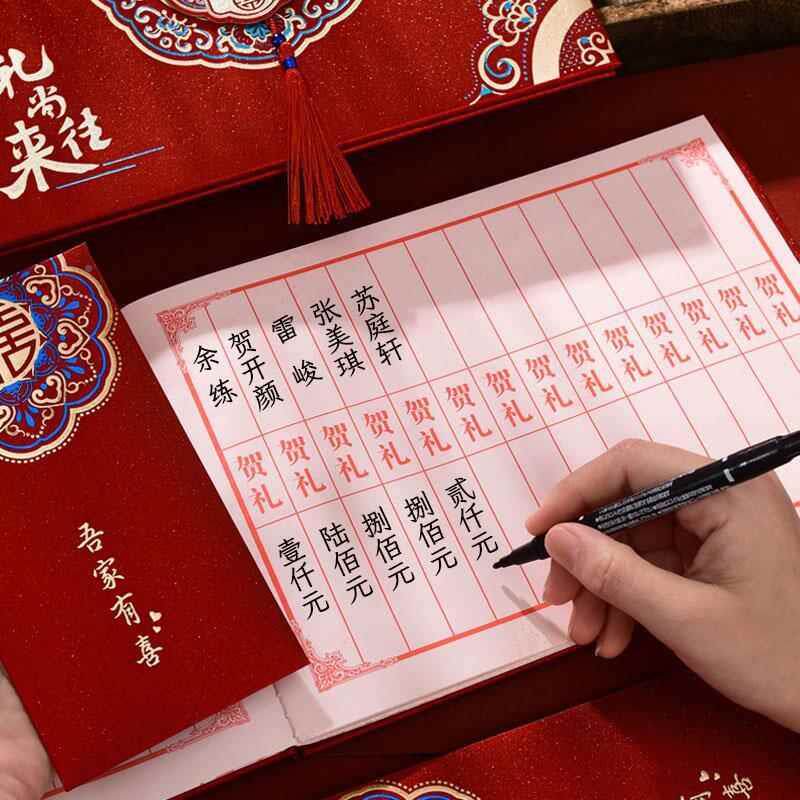 礼尚
来往
吾家有喜
余练
贺开颜
雷峻
张美琪
苏庭轩
贺礼
贺礼
贺礼
贺礼
贺礼
贺礼
贺礼
贺礼
贺礼
贺礼
贺礼
贺礼
贺礼
壹仟元
陆佰元
捌佰元
捌佰元
贰仟元